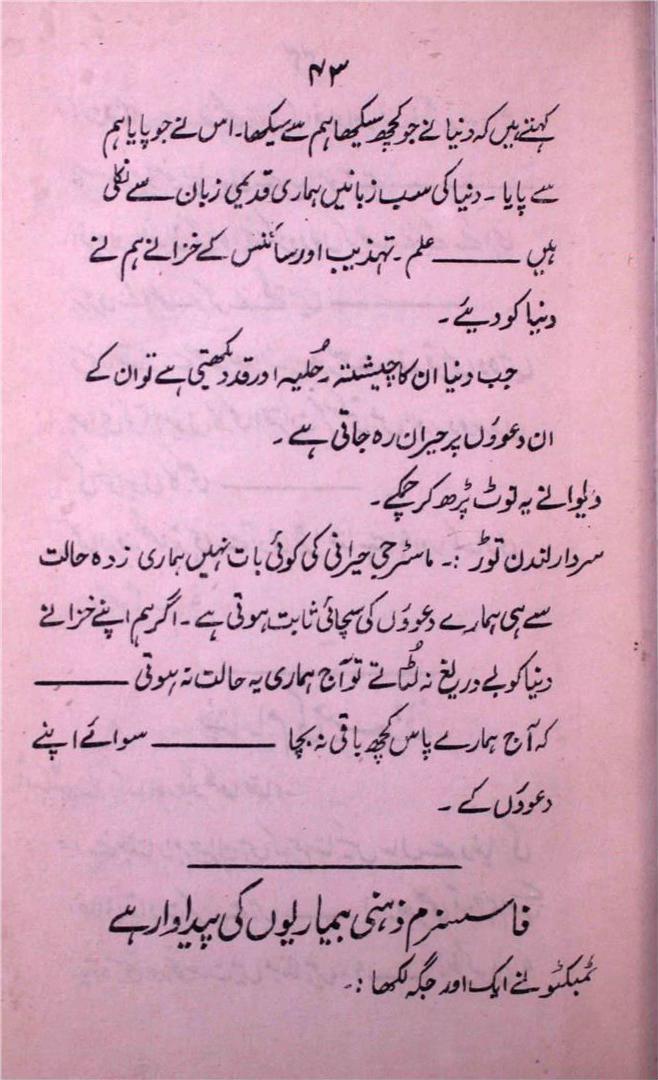 ۴۳
کہتے ہیں کہ دنیا نے جو کچھ سیکھا ہم سے سیکھا۔ اس نے جو پایا ہم
سے پایا ۔ دنیا کی سب زبانیں ہماری قدیمی زبان سے نکلی
ہیں ——— علم ۔ تہذیب اور سائنس کے خزانے ہم نے
دنیا کو دیئے ۔
جب دنیا ان کا چیشتہ رحُلیہ اور قد دیکھتی ہے تو ان کے
ان دعووُں پر حیران رہ جاتی ہے ۔
دیوانے یہ نوٹ پڑھ کر چکے ۔
سردار لندن توڑ :۔ ماسٹر جی حیرانی کی کوئی بات نہیں ہماری زدہ حالت
سے ہی ہمارے دعووُں کی سچائی ثابت ہوتی ہے ۔ اگر ہم اپنے خزانے
دنیا کو بے دریغ نہ لُٹاتے تو آج ہماری یہ حالت نہ ہوتی ———
کہ آج ہمارے پاس کچھ باقی نہ بچا ——— سوائے اپنے
دعووُں کے ۔
فاسسزم ذہنی بیماریوں کی پیداوار ہے
ٹمبکٹو نے ایک اور جگہ لکھا :۔